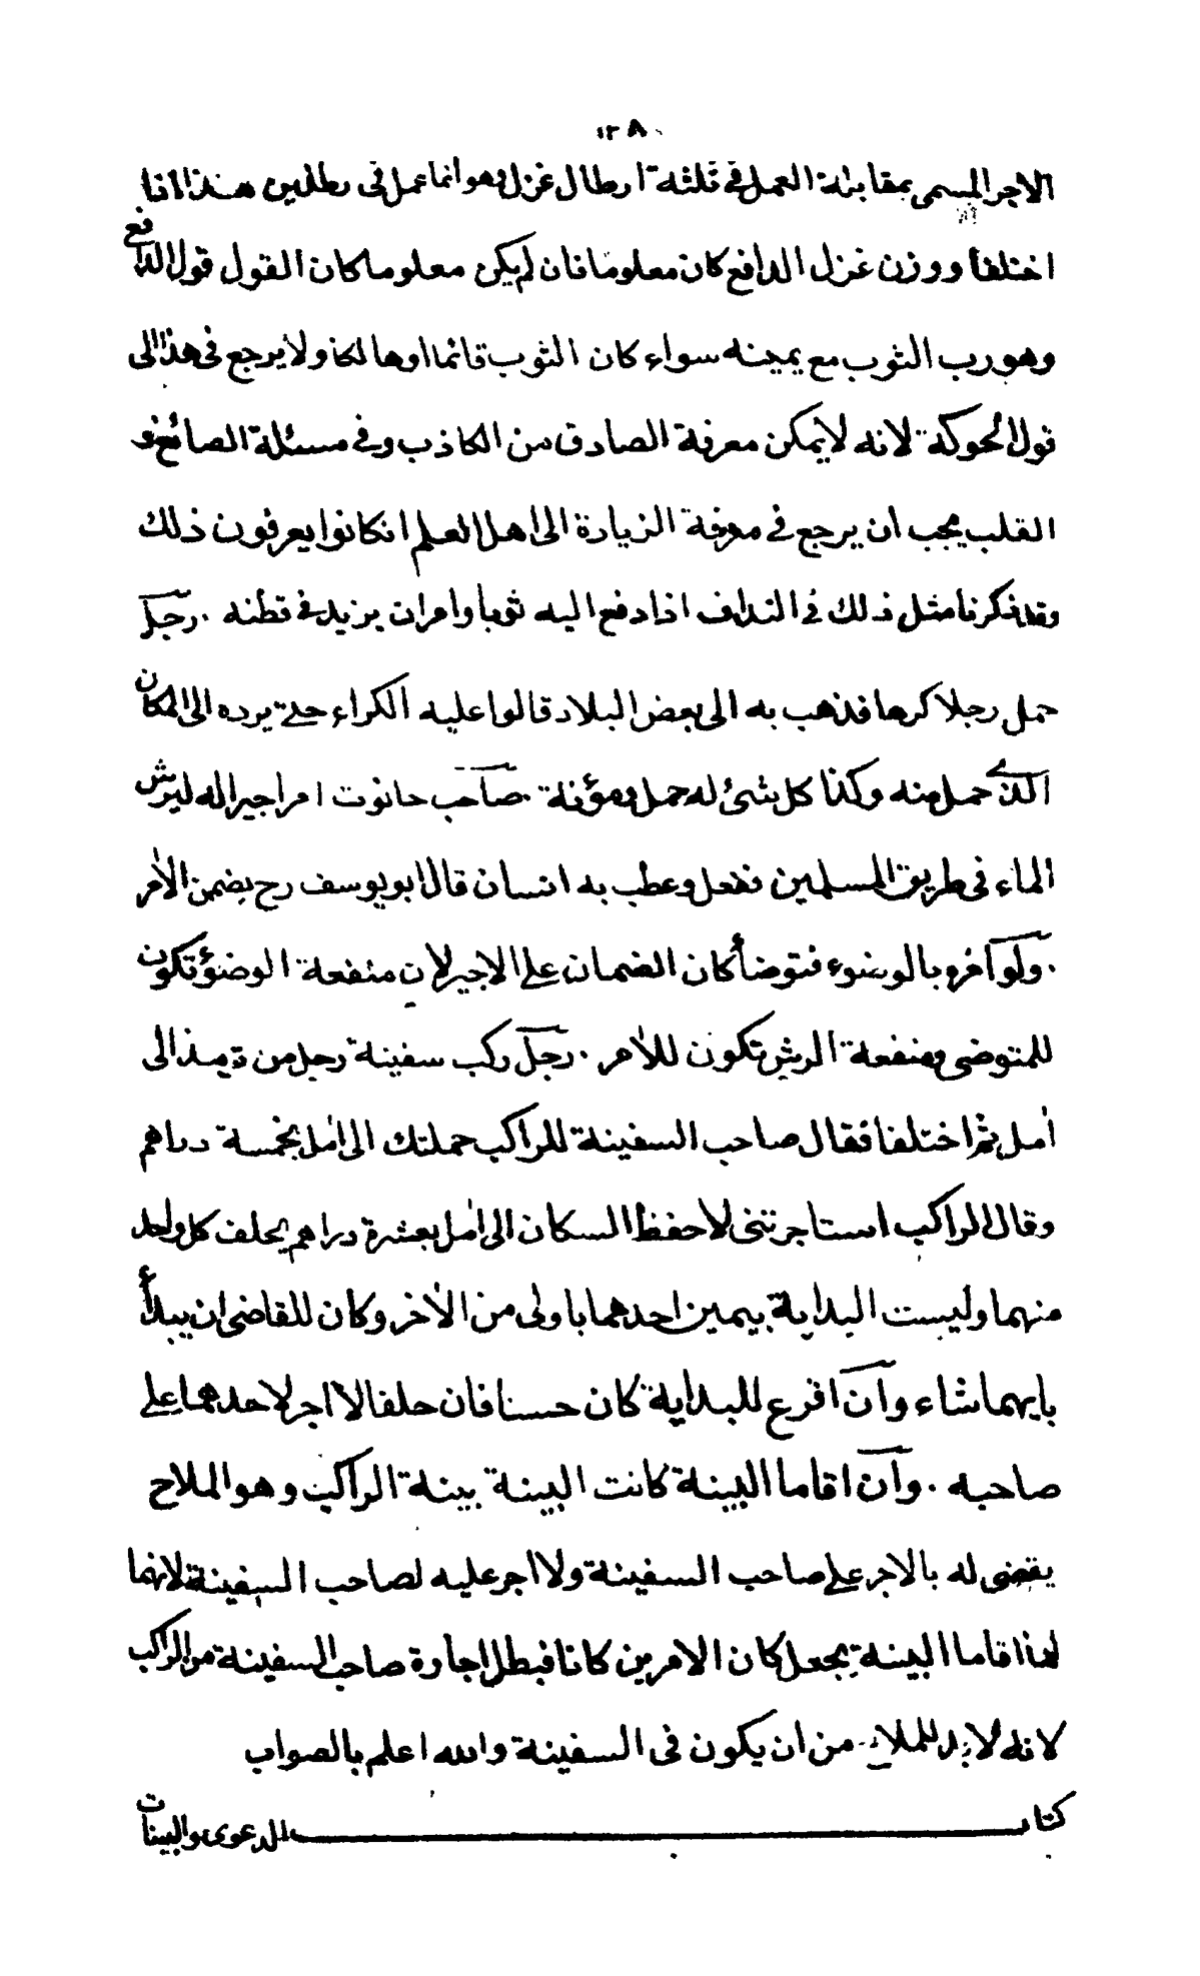 ١٢٨
الاجر المسمى بمقابلة العمل فى ثلثة ارطال غزل وهو انما عمل فى رطلين هذا اذا
اختلفا ووزن غزل الدافع كان معلوما فان لم يكن معلوما كان القول قول الدافع
وهو رب الثوب مع يمينه سواء كان الثوب قائما او هالكا ولا يرجع فى هذا الى
قول الحوكة لانه لا يمكن معرفة الصادق من الكاذب وفى مسئلة الصائغ و
القلب يجب ان يرجع فى معرفة الزيادة الى اهل العلم ان كانوا يعرفون ذلك
وقد ذكرنا مثل ذلك فى النداف اذا دفع اليه ثوبا وامران يزيد فى قطنه . رجل
حمل رجلا كرها فذهب به الى بعض البلاد قالوا عليه الكراء حتى يرده الى المكان
الذى حمل منه وكذا كل شئ له حمل ومؤنة . صاحب حانوت امر اجيرا له ليرش
الماء فى طريق المسلمين ففعل وعطب به انسان قال ابو يوسف رح يضمن الآمر
. ولو امره بالوضوء فتوضأ كان الضمان على الاجير لان منفعة الوضوء تكون
للمتوضى ومنفعة الرش تكون للآمر . رجل ركب سفينة رجل من ترمذ الى
آمل ثم اختلفا فقال صاحب السفينة للراكب حملتك الى آمل بخمسة دراهم
وقال الراكب استاجرتنى لاحفظ السكان الى آمل بعشرة دراهم يحلف كل واحد
منهما وليست البداية بيمين احدهما باولى من الآخر وكان للقاضى ان يبدأ
بايهما شاء وان اقرع للبداية كان حسنا فان حلفا لا اجر لاحدهما على
صاحبه . وان اقاما البينة كانت البينة بينة الراكب وهو الملاح
يقضى له بالاجر على صاحب السفينة ولا اجر عليه لصاحب السفينة لانهما
لما اقاما البينة يجعل كان الامرين كانا فبطل اجارة صاحب السفينة من الراكب
لانه لا بد للملاح من ان يكون فى السفينة والله اعلم بالصواب
كتاب الدعوى والبينات